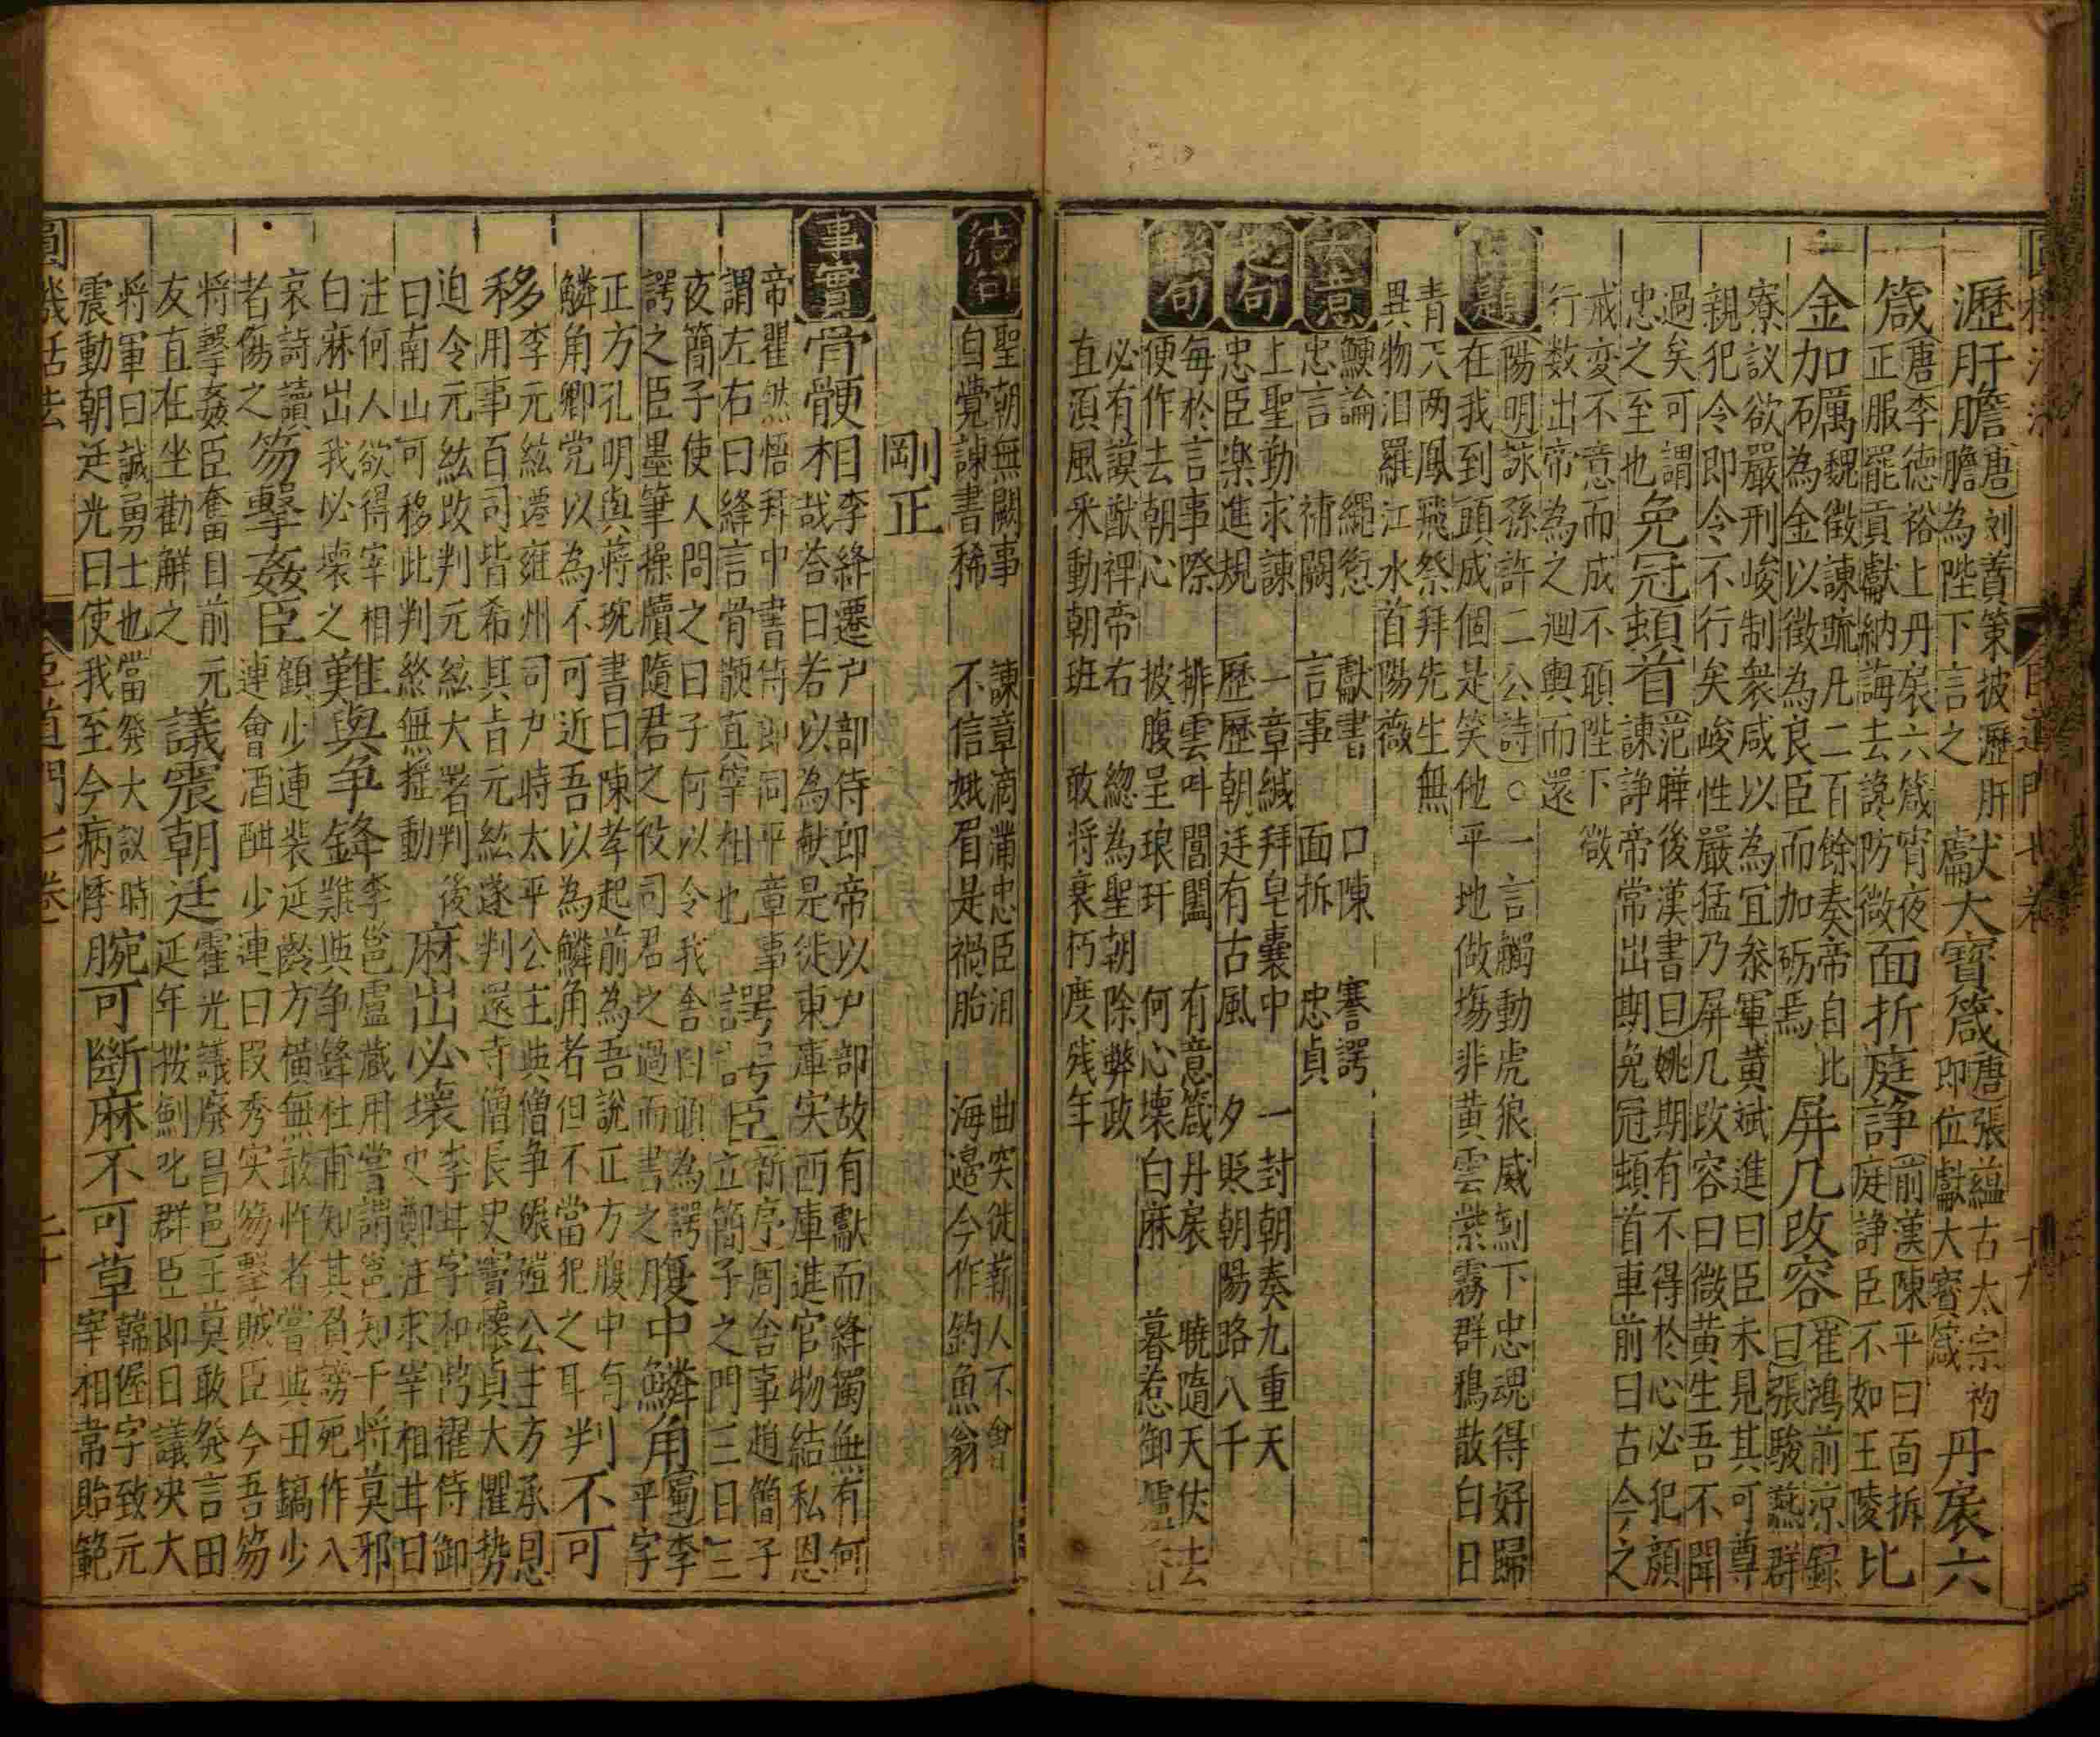 瀝肝膽(唐)刘蕡策披瀝肝膽為陛下言之 獻大寶箴(唐)張蘊古太宗初即位獻大寶箴 丹扆六
箴(唐)李德裕上丹扆六箴宵夜正服罷貢獻納誨去讒防微 面折庭諍(前漢)陳平曰面拆庭諍臣不如王陵 比
金加礪魏徵諫疏凡二百餘奏帝自比為金以徵為良臣而加砺焉 屏几改容(崔鴻前凉録曰)張駿燕群
寮議欲嚴刑峻制衆咸以為宜叅軍黄斌進曰臣未見其可尊
親犯令即令不行矣峻性嚴猛乃屏几改容曰微黄生吾不聞
過矣可謂忠之至也 免冠頓首(范曄後漢書曰)姚期有不得於心必犯顔諫諍帝常出期免冠頓首車前曰古今之
戒变不意而成不頋陛下微行数出帝為之廻輿而還
品題(陽明詠孫許二公詩)○一言觸動虎狼威刻下忠魂得好歸
在我到頭成個是笑他平地做塲非黄雲紫霧群鴉散白日
青天两鳳飛祭拜先生無異物汨羅江水首陽薇
大意 鯁論 繩愆 獻書 口陳 謇諤
忠言 補闕 言事 面拆 忠貞
起句 上聖動求諫 一章緘拜皂囊中 一封朝奏九重天
忠臣楽進規 歷歷朝廷有古風 夕貶朝陽路八千
聯句 每於言事際 排雲呌閶闔 有意箴丹扆 曉隨天仗去
便作去朝心 披腹呈琅玕 何心壊白麻 暮惹御爐
必有謨猷裨帝右 緫為聖朝除弊政
直須風采動朝班 敢将衰朽度残年
結句 聖朝無闕事 諫章滴滿忠臣泪 曲突徙薪人不會
自覺諫書稀 不信娥眉是禍胎 海邉今作釣魚翁
剛正
事實 骨骾相 李絳遷户部侍郎帝以户部故有獻而絳獨無有何
哉荅曰若以為献是徙東庫实西庫進官物結私恩
帝瞿然悟拜中書侍郎同平章事謂左右曰絳言骨骾真宰相也 諤諤臣 新序周舎事趙簡子立簡子之門三日三
夜簡子使人問之曰子何以令我舎曰頋為諤諤之臣墨筆操牘隨君之後司君之過而書之 腹中鱗角(蜀)李平字
正方孔明與蒋琬書曰陳孝起前為吾說正方腹中有鱗角鄉党以為不可近吾以為鱗角者但不當犯之耳 判不可
移 李元絃遷雍州司户時太平公主與僧争碾磑公主方承恩用事百司皆希其㫖元絃遂判還寺僧長史竇懷貞大懼势
迫令元絃改判元絃大署判後曰南山可移此判終無摇動 麻出必壊 李甘字和鼎擢侍御史鄭注求宰相甘曰
注何人欲得宰相白麻出我必壊之 難與争鋒 李邕盧藏用嘗謂邕知干将莫邪難與争鋒杜甫知其負謗死作八
哀詩讀者傷之 笏擊姦臣 顔少連裴延齡方横無敢忤者嘗與田鎬少連會酒酣少連曰叚秀实笏擊賊臣今吾笏
将擊姦臣奮目前元友直在坐勸解之 議震朝廷 霍光議廢昌邑王莫敢発言田延年按劎叱群臣即日議决大
将軍曰誠勇士也當発大議時震動朝廷光曰使我至今病悸 腕可斷麻不可草 韓偓字致元宰相常貽範
圓機活法 臣道門七卷 二十